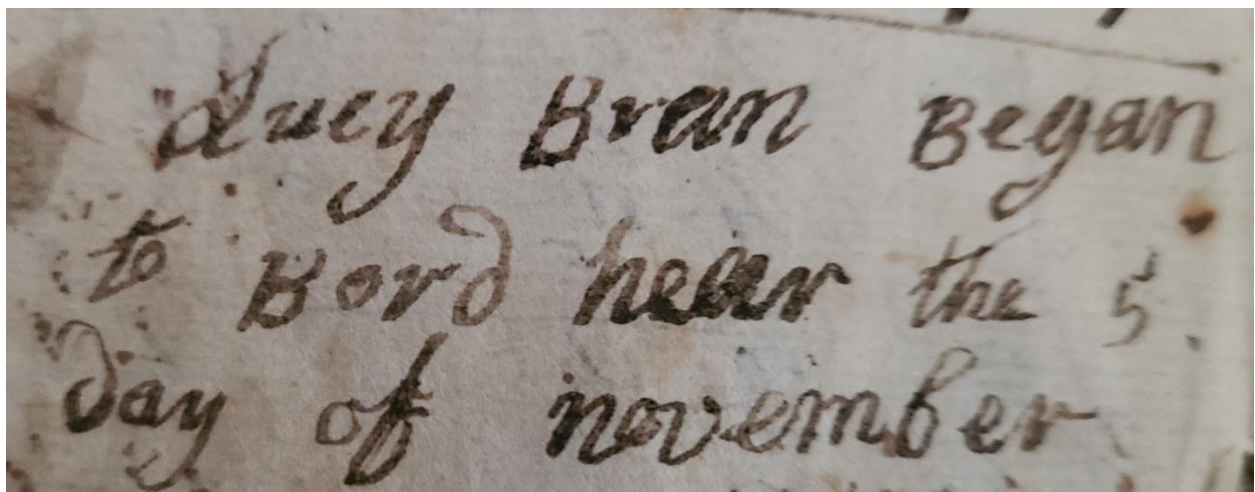 Lucy Bran Began
to Bord hear the 5
day of november